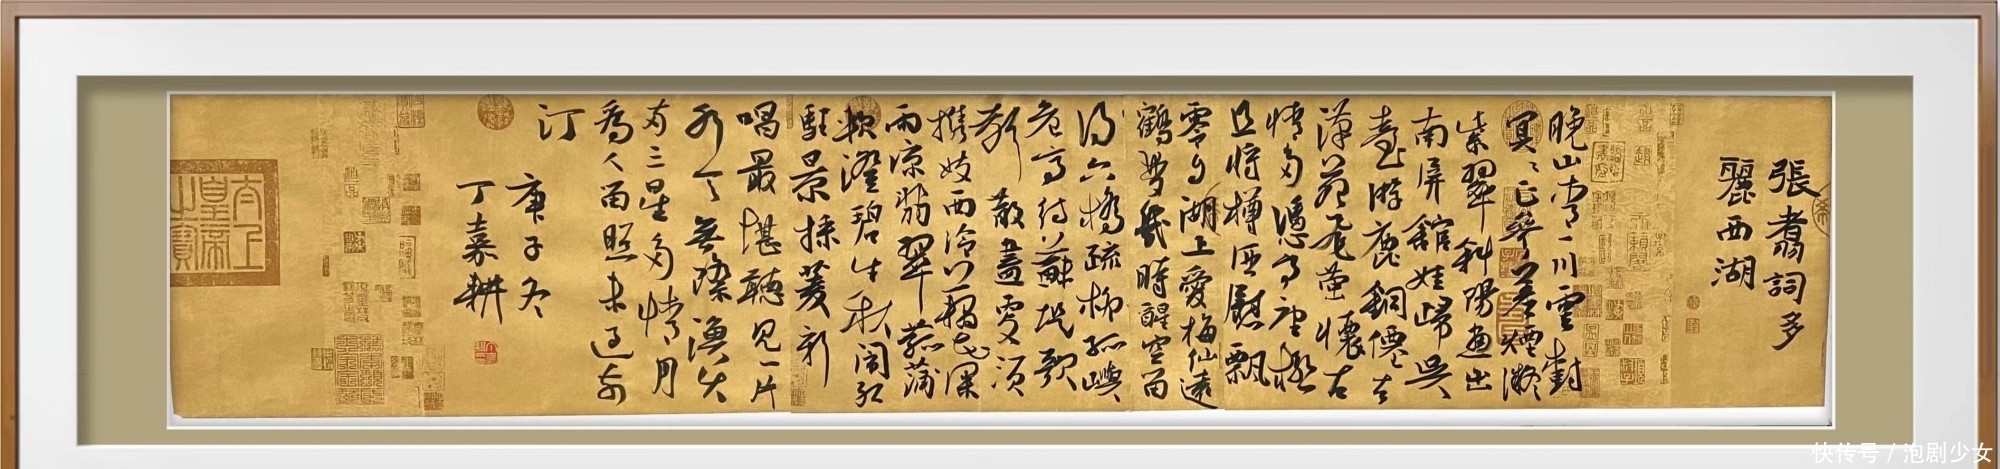 張翥詞多
麗西湖
晚山青一川雲樹
冥〻正參差煙凝
紫翠斜陽畫出
南屏館娃歸吳
臺游鹿銅僊去
漢苑飛螢懷古
情多憑高望極
且將樽酒慰飄
零自湖上愛梅仙遠
鶴夢幾時醒空留
得六橋疏柳孤嶼
危亭待蘇堤歌
聲散盡更須
攜妓西泠藕花深
雨涼翡翠菰蒲
軟澄碧生秋鬧紅
駐景採菱新
唱最堪聽見一片
水天無際漁火
兩三星多情月
為人留照未過前
汀
庚子冬
丁嘉耕
太上皇帝之寶
快传号/泡剧少女